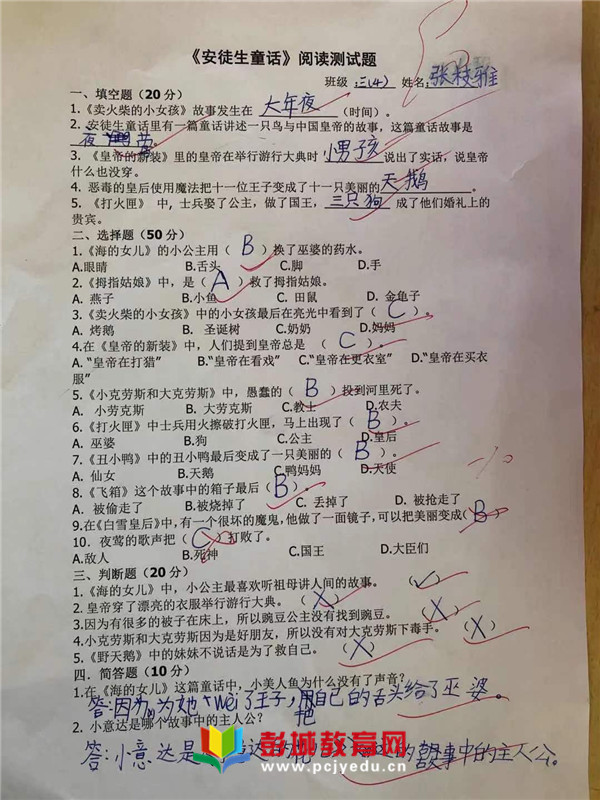 《安徒生童话》阅读测试题
班级:三(4) 姓名:张枝雅
一、填空题(20分)
1.《卖火柴的小女孩》故事发生在 大年夜 (时间)。
2. 安徒生童话里有一篇童话讲述一只鸟与中国皇帝的故事，这篇童话故事是
夜莺
3. 《皇帝的新装》里的皇帝在举行游行大典时，小男孩 说出了实话，说皇帝
什么也没穿。
4. 恶毒的皇后使用魔法把十一位王子变成了十一只美丽的 天鹅 。
5. 《打火匣》 中, 士兵娶了公主，做了国王，三只狗 成了他们婚礼上的
贵宾。
二、选择题(50分)
1.《海的女儿》的小公主用（ B ）换了巫婆的药水。
A.眼睛 B.舌头 C.脚 D.手
2.《拇指姑娘》中，是（ A ）救了拇指姑娘。
A. 燕子 B.小鱼 C. 田鼠 D. 金龟子
3.《卖火柴的小女孩》中的小女孩最后在亮光中看到了（ C ）。
A. 烤鹅 B. 圣诞树 C.奶奶 D.妈妈
4.在《皇帝的新装》中，人们提到皇帝总是 （ C ）。
A.“皇帝在打猎” B.“皇帝在看戏” C.“皇帝在更衣室” D.“皇帝在买衣
服”
5.《小克劳斯和大克劳斯》中，愚蠢的（ B ）投到河里死了。
A. 小劳克斯 B. 大劳克斯 C.教士 D.农夫
6.《打火匣》中士兵用火擦破打火匣，马上出现了（ B ）。
A. 巫婆 B.狗 C.公主 D.皇后
7.《丑小鸭》中的丑小鸭最后变成了一只美丽的（ B ）。
A. 仙女 B.天鹅 C.鸭妈妈 D.天使
8.《飞箱》这个故事中的箱子最后（ B ）。
A. 被偷走了 B.被烧掉了 C. 丢掉了 D. 被抢走了
9.在《白雪皇后》中,有一个很坏的魔鬼,他做了一面镜子,可以把美丽变成( B )
10. 夜莺的歌声把（ C ）打败了。
A.敌人 B.死神 C.国王 D.大臣们
-10
三、判断题(20分)
1.《海的女儿》中，小公主最喜欢听祖母讲人间的故事。 （√）
2. 皇帝穿了漂亮的衣服举行游行大典。（ X ）
3.因为有很多的被子在床上，所以豌豆公主没有找到豌豆。 （X）
4.小克劳斯和大克劳斯因为是好朋友，所以没有对大克劳斯下毒手。（ X ）
5.《野天鹅》中的妹妹不说话是为了救自己。 （X）
四．简答题(10分)
1.在《海的女儿》这篇童话中，小美人鱼为什么没有了声音?
答:因为为她wèi了王子,把自己的舌头给了巫婆。
2. 小意达是哪个故事中的主人公?
答:小意达是 的故事中的主人公。
彭城教育网
www.pcjyedu.com